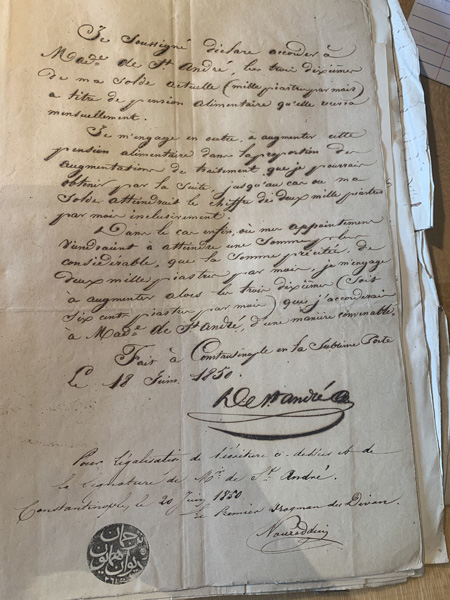 Je Soussigné déclare accorder à
Made de St André, les trois dixièmes
de ma solde actuelle (mille piastres par mois)
a titre de pension alimentaire qu'elle
mensuellement.
Je m'engage en outre, à augmenter cette
pension alimentaire dans la proportion des
augmentations de traitement que je pourrais
obtenir par la suite jusqu'au cas ou ma
Solde atteindrait le chiffre de deux mille piastres
par mois inclusivement.
Dans le cas enfin, où mes appointemens
viendraient à atteindre une Somme plus
considérable, que la Somme précitée de
deux mille piastres par mois, je m'engage
à augmenter alors les trois dixièmes (soit
six cent piastres par mois) que j'accorderais
à Made de St André, d'une manière convenable.
Fait à Constantinople en la Sublime Porte
Le 18 Juin 1850.
De St André
Pour légalisation de l'écriture ci-dessus et de
la signature de Mr de St André.
Constantinople, le 20 Juin 1850
Le Premier Drogman du Divan
Noureddin